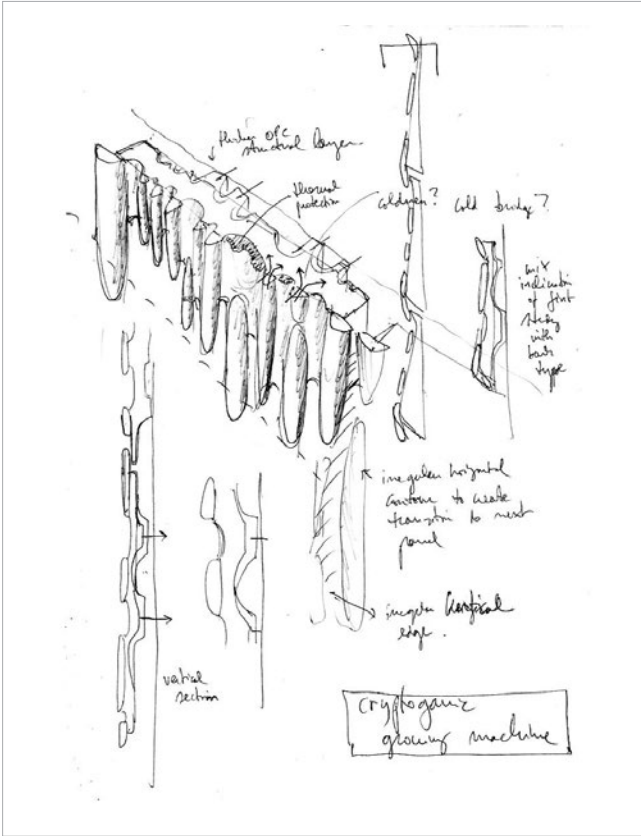 thicker OPC
structural layer
thermal
protection
coldseam? cold bridge?
mix
of first
with
type
irregular horizontal
contour to create
transition to next
panel
irregular vertical
edge.
vertical
section
cryptogamic
growing machine